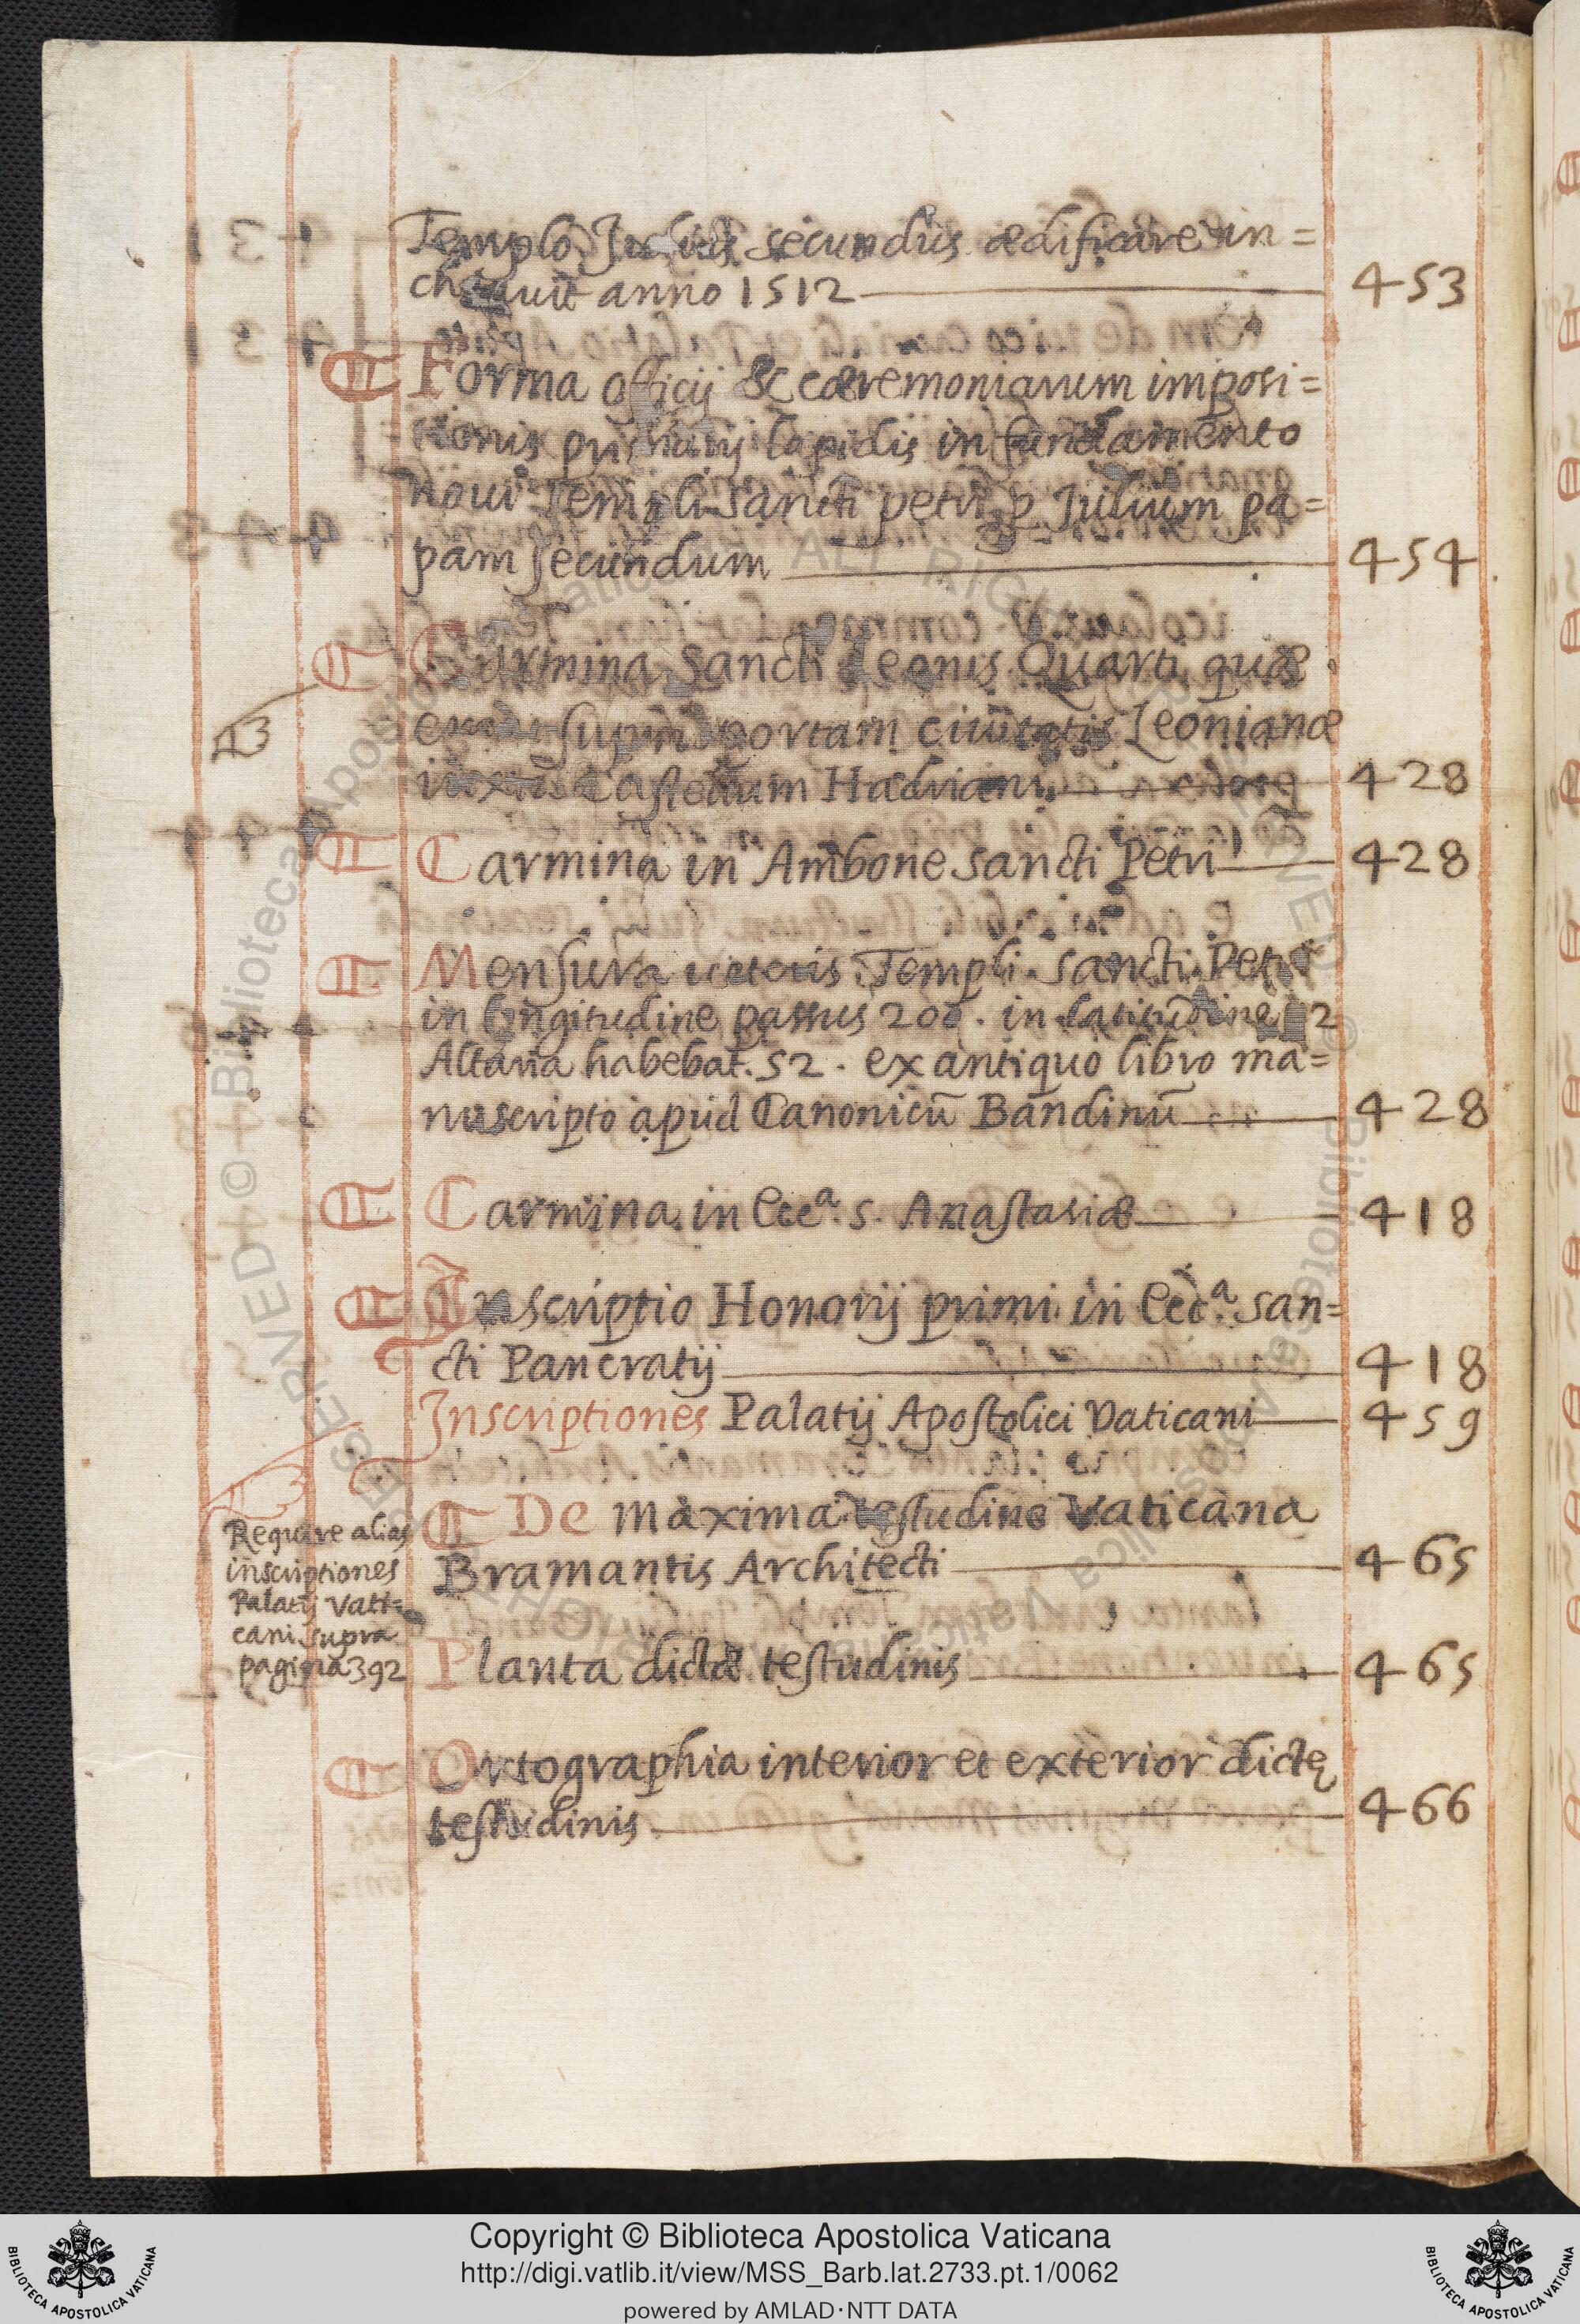 Templo Julius secundus ædificare in=
choavit anno 1512 453
Forma officij & cæremoniarum imposi=
tionis primarij lapidis in fundamento
noui Templi sancti petri p Julium pa=
pam secundum 454
Carmina Sancti Leonis Quarti quæ
erant supra portam ciuitatis Leonianæ
iuxta Castellum Hadriani 428
Carmina in Ambone sancti Petri 428
Mensura ueteris Templi sancti Petri
in longitudine passus 200. in latitudine
Altaria habebat. 52. ex antiquo libro ma=
nuscripto apud Canonicū Bandinū 428
Carmina in Eccª. s. Anastasiæ 418
Inscriptio Honorij primi in Eccª. san=
cti Pancratij 418
Inscriptiones Palatij Apostolici Vaticani 459
Require alias
inscriptiones
Palatij Vati=
cani supra
pagina 392
De maxima testudine Vaticana
Bramantis Architecti 465
Planta dictæ testudinis 465
Ortographia interior et exterior dictę
testudinis 466
Copyright © Biblioteca Apostolica Vaticana
http://digi.vatlib.it/view/MSS_Barb.lat.2733.pt.1/0062
powered by AMLAD·NTT DATA
BIBLIOTECA APOSTOLICA VATICANA
BIBLIOTECA APOSTOLICA VATICANA